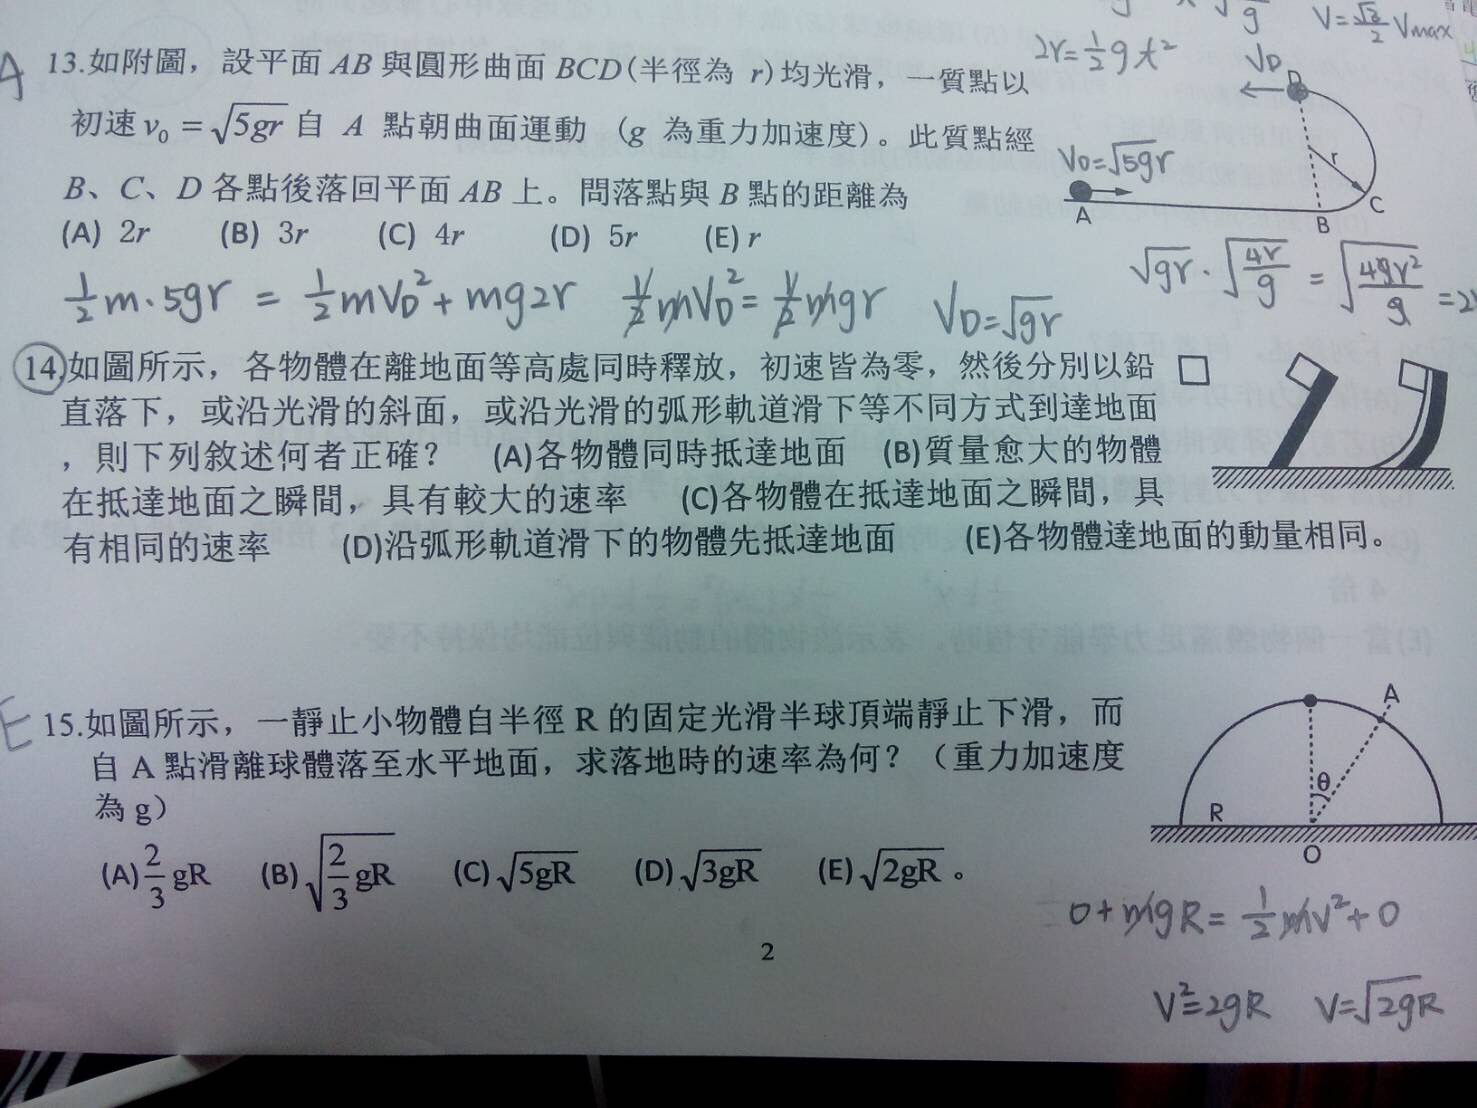 V=√3/2 Vmax
2r=½gt²
A 13.如附圖，設平面 AB 與圓形曲面 BCD(半徑為 r)均光滑，一質點以
初速 v₀ = √5gr 自 A 點朝曲面運動 (g 為重力加速度)。此質點經
B、C、D 各點後落回平面 AB 上。問落點與 B 點的距離為
(A) 2r (B) 3r (C) 4r (D) 5r (E) r
VD
D
r
V0=√5gr
A
B
C
½m·5gr = ½mVD²+mg2r ½mVD²=½mgr VD=√gr
√gr·√4r/g = √4gr²/g =2r
14.如圖所示，各物體在離地面等高處同時釋放，初速皆為零，然後分別以鉛
直落下，或沿光滑的斜面，或沿光滑的弧形軌道滑下等不同方式到達地面
，則下列敘述何者正確？ (A)各物體同時抵達地面 (B)質量愈大的物體
在抵達地面之瞬間，具有較大的速率 (C)各物體在抵達地面之瞬間，具
有相同的速率 (D)沿弧形軌道滑下的物體先抵達地面 (E)各物體達地面的動量相同。
E 15.如圖所示，一靜止小物體自半徑 R 的固定光滑半球頂端靜止下滑，而
自 A 點滑離球體落至水平地面，求落地時的速率為何？（重力加速度
為 g）
(A) 2/3 gR (B) √2/3 gR (C) √5gR (D) √3gR (E) √2gR 。
A
θ
R
O
0+mgR=½mv²+0
V²=2gR V=√2gR
2